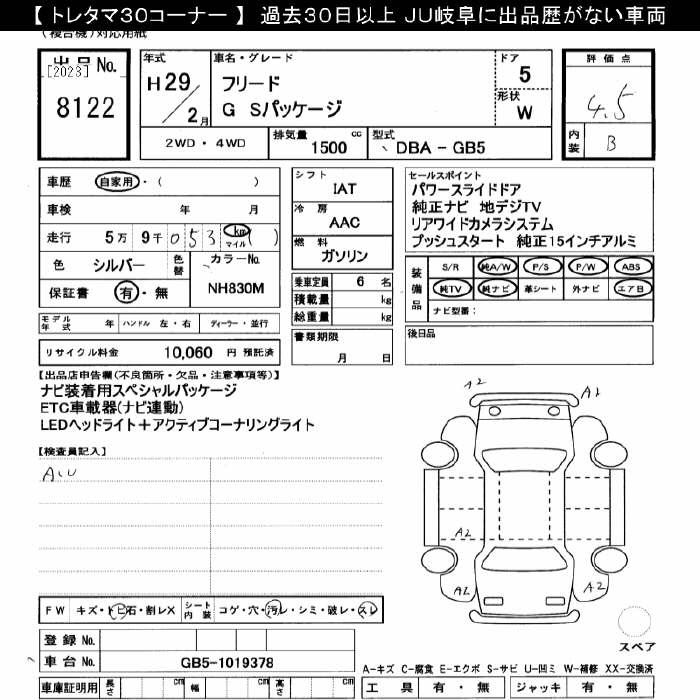 【 トレタマ30コーナー 】 過去30日以上 JU岐阜に出品歴がない車両
(複合機)対応用紙
出品No.
[2023]
8122
年式
H29/2月
車名・グレード
フリード
G Sパッケージ
ドア
5
形状
W
評価点
4.5
内装
B
2WD・4WD
排気量
1500 cc
型式
DBA-GB5
車歴 自家用・( )
車検 年 月
走行 5万 9千 053 km マイル ( )
色 シルバー 色替 カラーNo.
保証書 有・無 NH830M
シフト
IAT
冷房
AAC
燃料
ガソリン
セールスポイント
パワースライドドア
純正ナビ 地デジTV
リアワイドカメラシステム
プッシュスタート 純正15インチアルミ
乗車定員 6 名
積載量 kg
総重量 kg
装備品
S/R 純A/W P/S P/W ABS
純TV 純ナビ 革シート 外ナビ エアB
ナビ型番:
モデル年式 年 ハンドル 左・右 ディーラー・並行
書類期限
月 日
後日品
リサイクル料金 10,060 円 預託済
【出品店申告欄(不良箇所・欠品・注意事項等)】
ナビ装着用スペシャルパッケージ
ETC車載器(ナビ連動)
LEDヘッドライト+アクティブコーナリングライト
【検査員記入】
AU
A2
A1
A2
A2
A2
FW キズ・トビ石・割レX シート内装 コゲ・穴・汚レ・シミ・破レ・スレ
登録No.
車台No. GB5-1019378
車庫証明用 長さ cm 幅 cm 高さ cm
スペア
A-キズ C-腐食 E-エクボ S-サビ U-凹ミ W-補修 XX-交換済
工具 有・無 ジャッキ 有・無